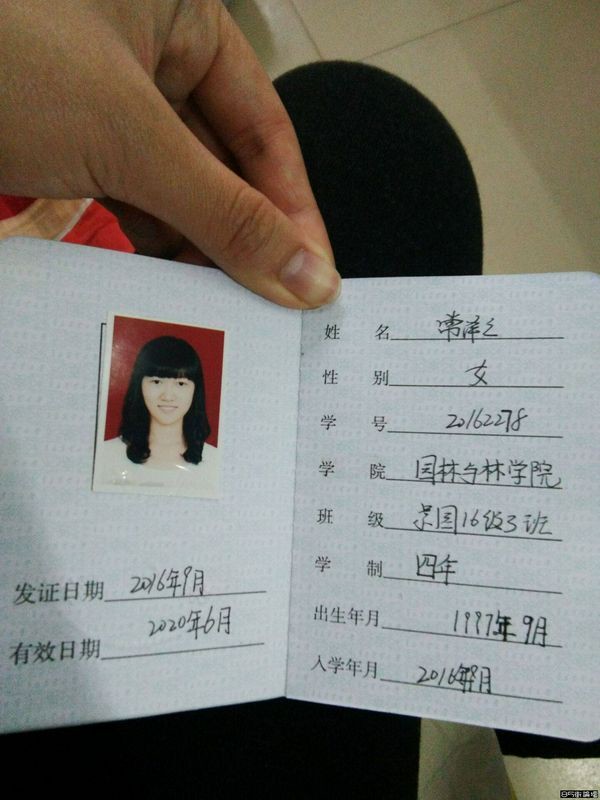 发证日期 2016年9月
有效日期 2020年6月
姓 名
性 别 女
学 号 20162278
学 院 园林与林学院
班 级 景园16级3班
学 制 四年
出生年月 1997年9月
入学年月 2016年9月